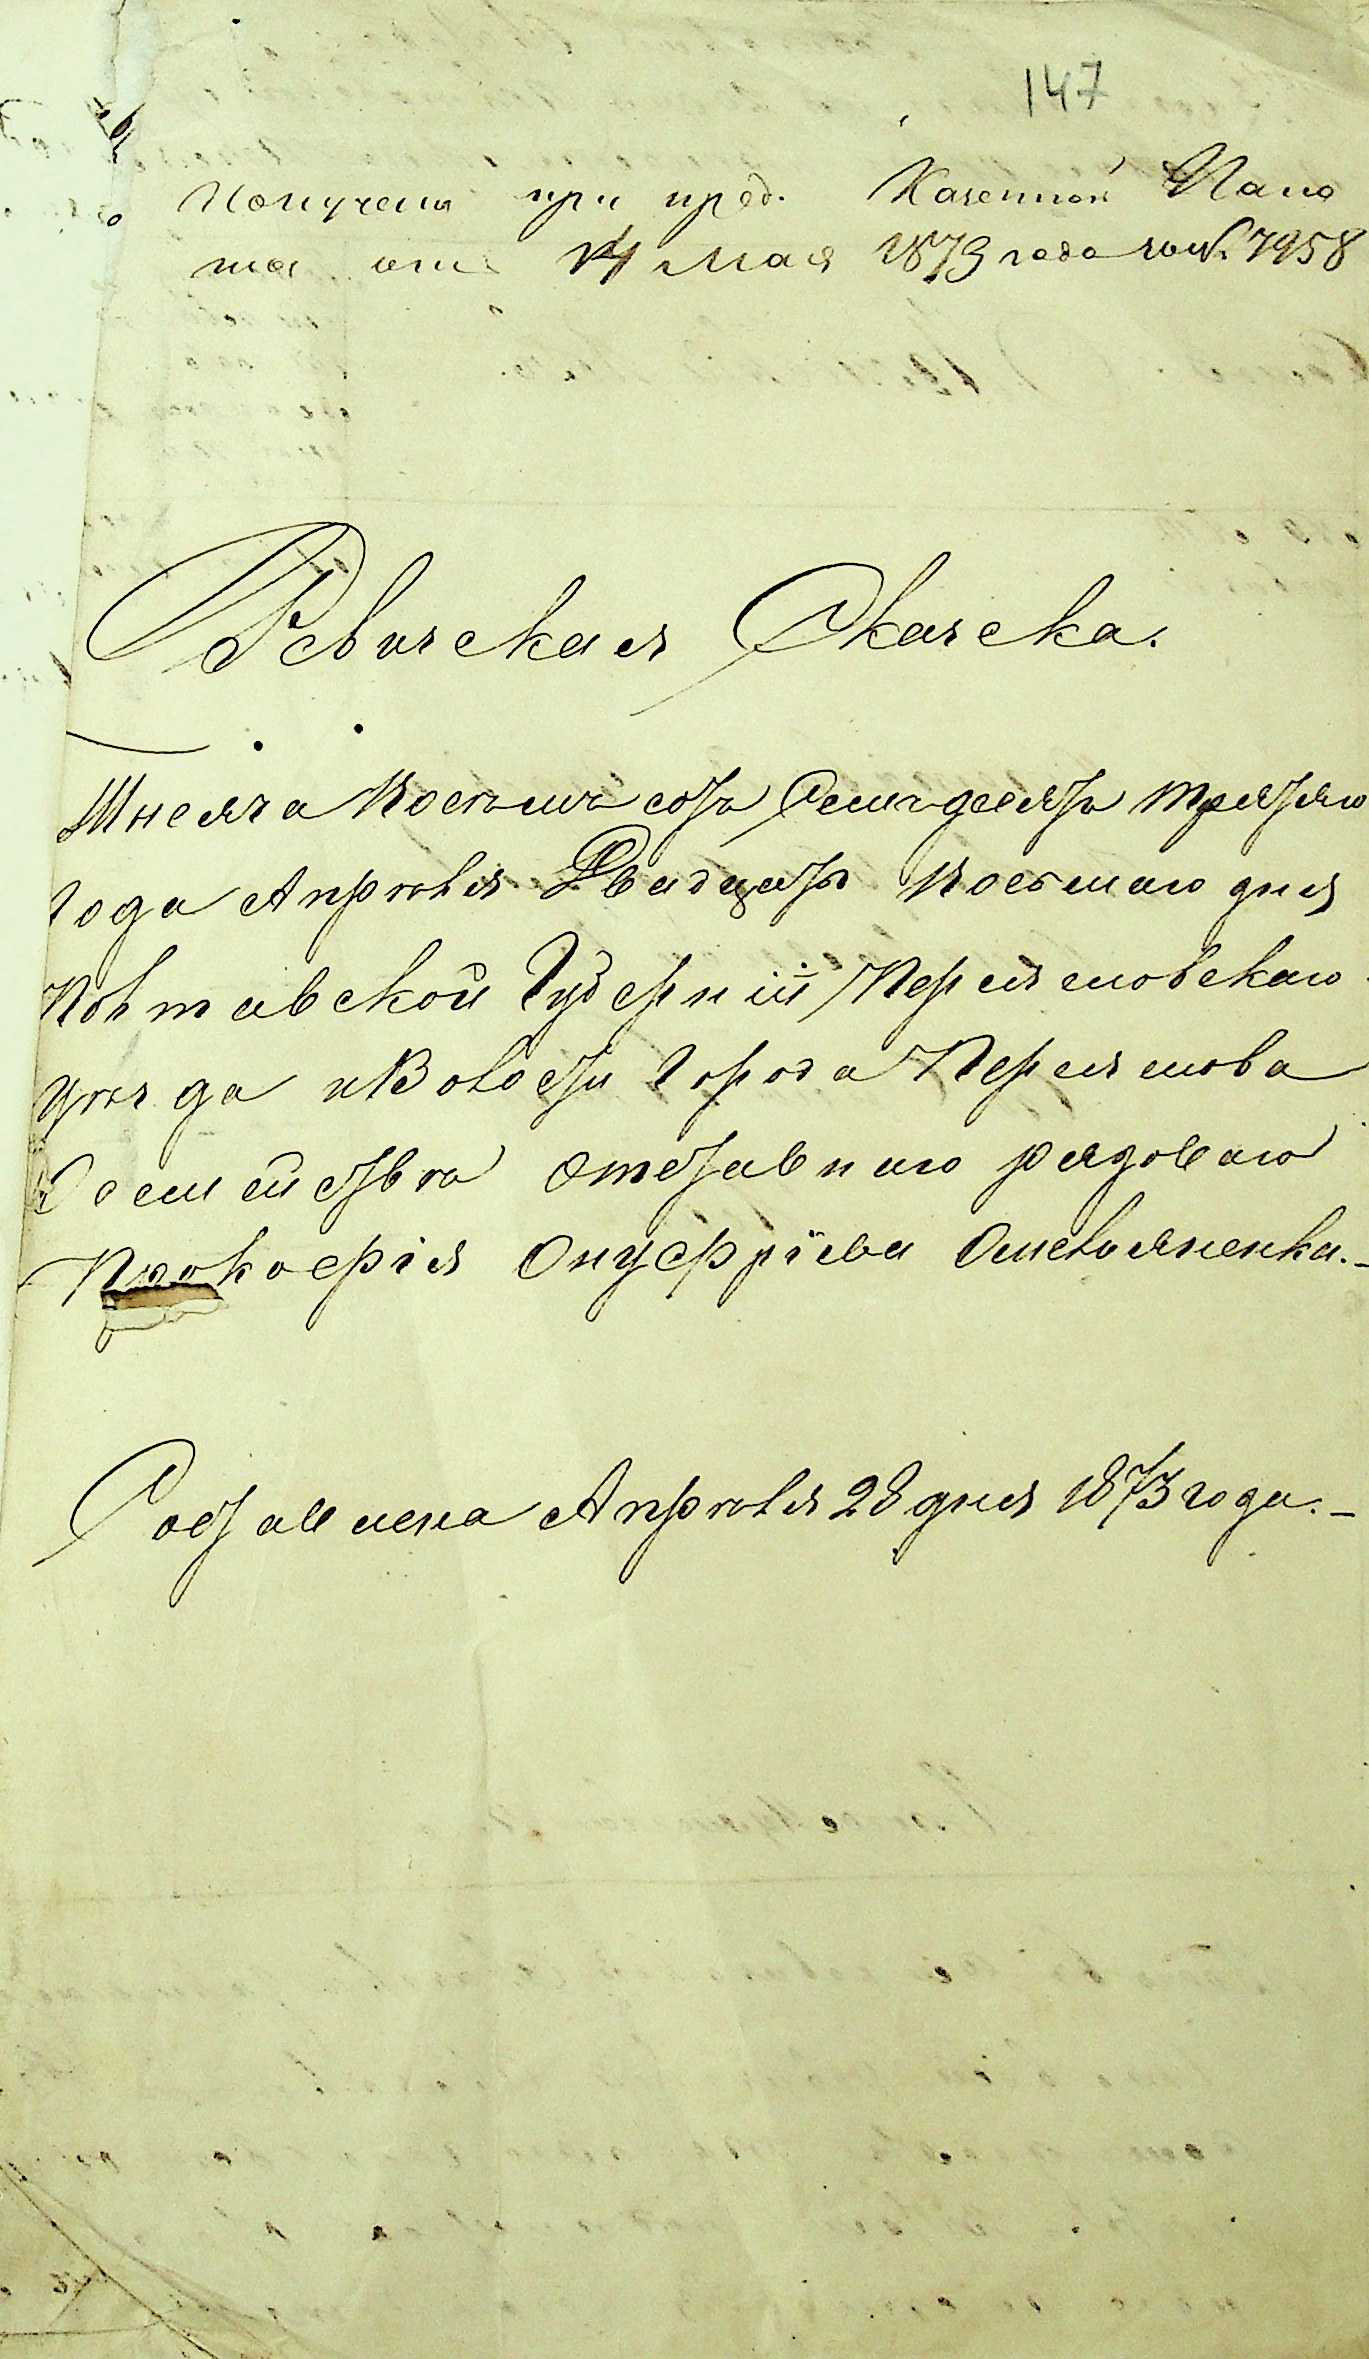 147
Получена при пред. Казенной Пала
ты отъ 14 Мая 1873 года за № 7958
Ревизская Сказка.
Тысяча восемь сотъ Семьдесятъ третьяго
года Апрѣля Двадцать восьмаго дня
Полтавской Губерніи Переясловскаго
уѣзда и Волости города Переяслова
о семействѣ отставнаго рядоваго
Прокофія Онуфріева Омельяненка.
Составлена Апрѣля 28 дня 1873 года.